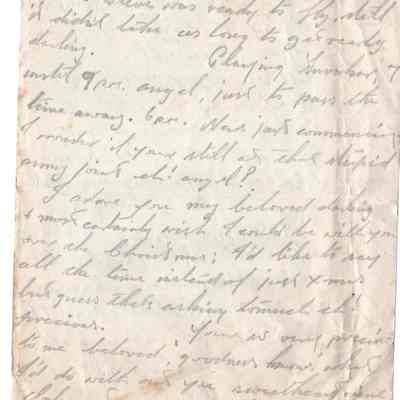 was ready to fly, still
it didn't take us long to get ready
darling. Playing snooker,
until 9 pm. angel, just to pass the
time away. 6 pm. News just commencing
I wonder if your still at that stupid
army joint eh! angel?
I adore you my beloved darling
& most certainly wish I could be with you
over the Christmas; I'd like to say
all the time instead of just Xmas
but guess that's asking to much eh!
precious. Your so very precious
to me beloved, goodness knows what
I'd do with out you sweetheart mine